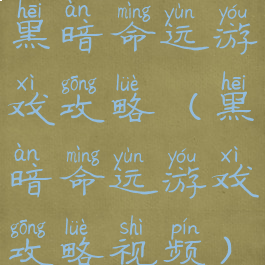 hēi àn mìng yùn yóu
黑暗命运游
xì gōng lüè hēi
戏攻略（黑
àn mìng yùn yóu xì
暗命运游戏
gōng lüè shì pín
攻略视频）